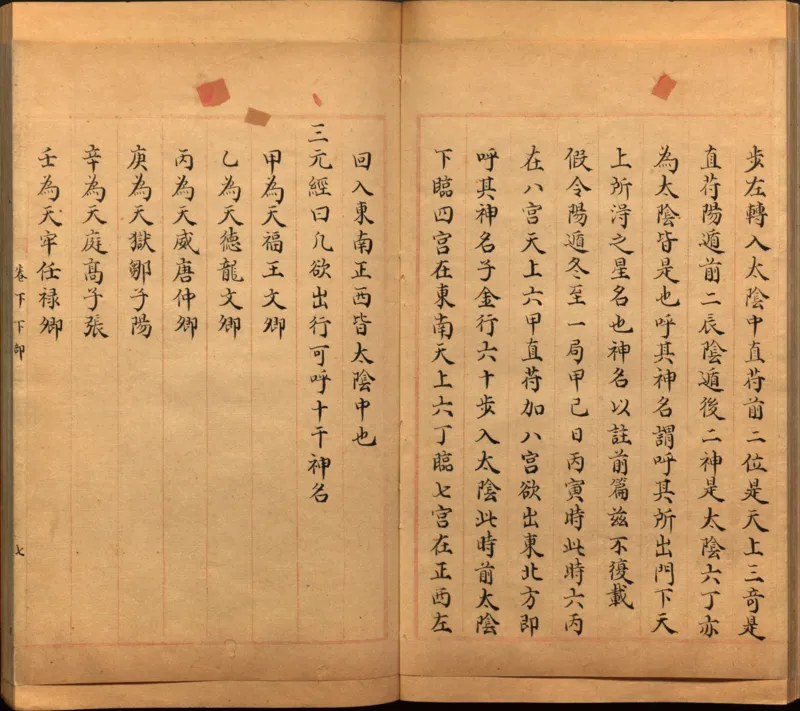 步左轉入太陰中直苻前二位是天上三竒是
直苻陽遁前二辰陰遁後二神是太陰六丁亦
為太陰皆是也呼其神名謂呼其所出門下天
上所淂之星名也神名以註前篇兹不復載
假令陽遁冬至一局甲己日丙寅時此時六丙
在八宮天上六甲直苻加八宮欲出東北方即
呼其神名子金行六十步入太陰此時前太陰
下臨四宮在東南天上六丁臨七宮在正西左
回入東南正西皆太陰中也
三元經曰凢欲出行可呼十干神名
甲為天福王文卿
乙為天德龍文卿
丙為天威唐仲卿
庚為天獄鄒子陽
辛為天庭髙子張
壬為天牢任禄卿
卷下下
七